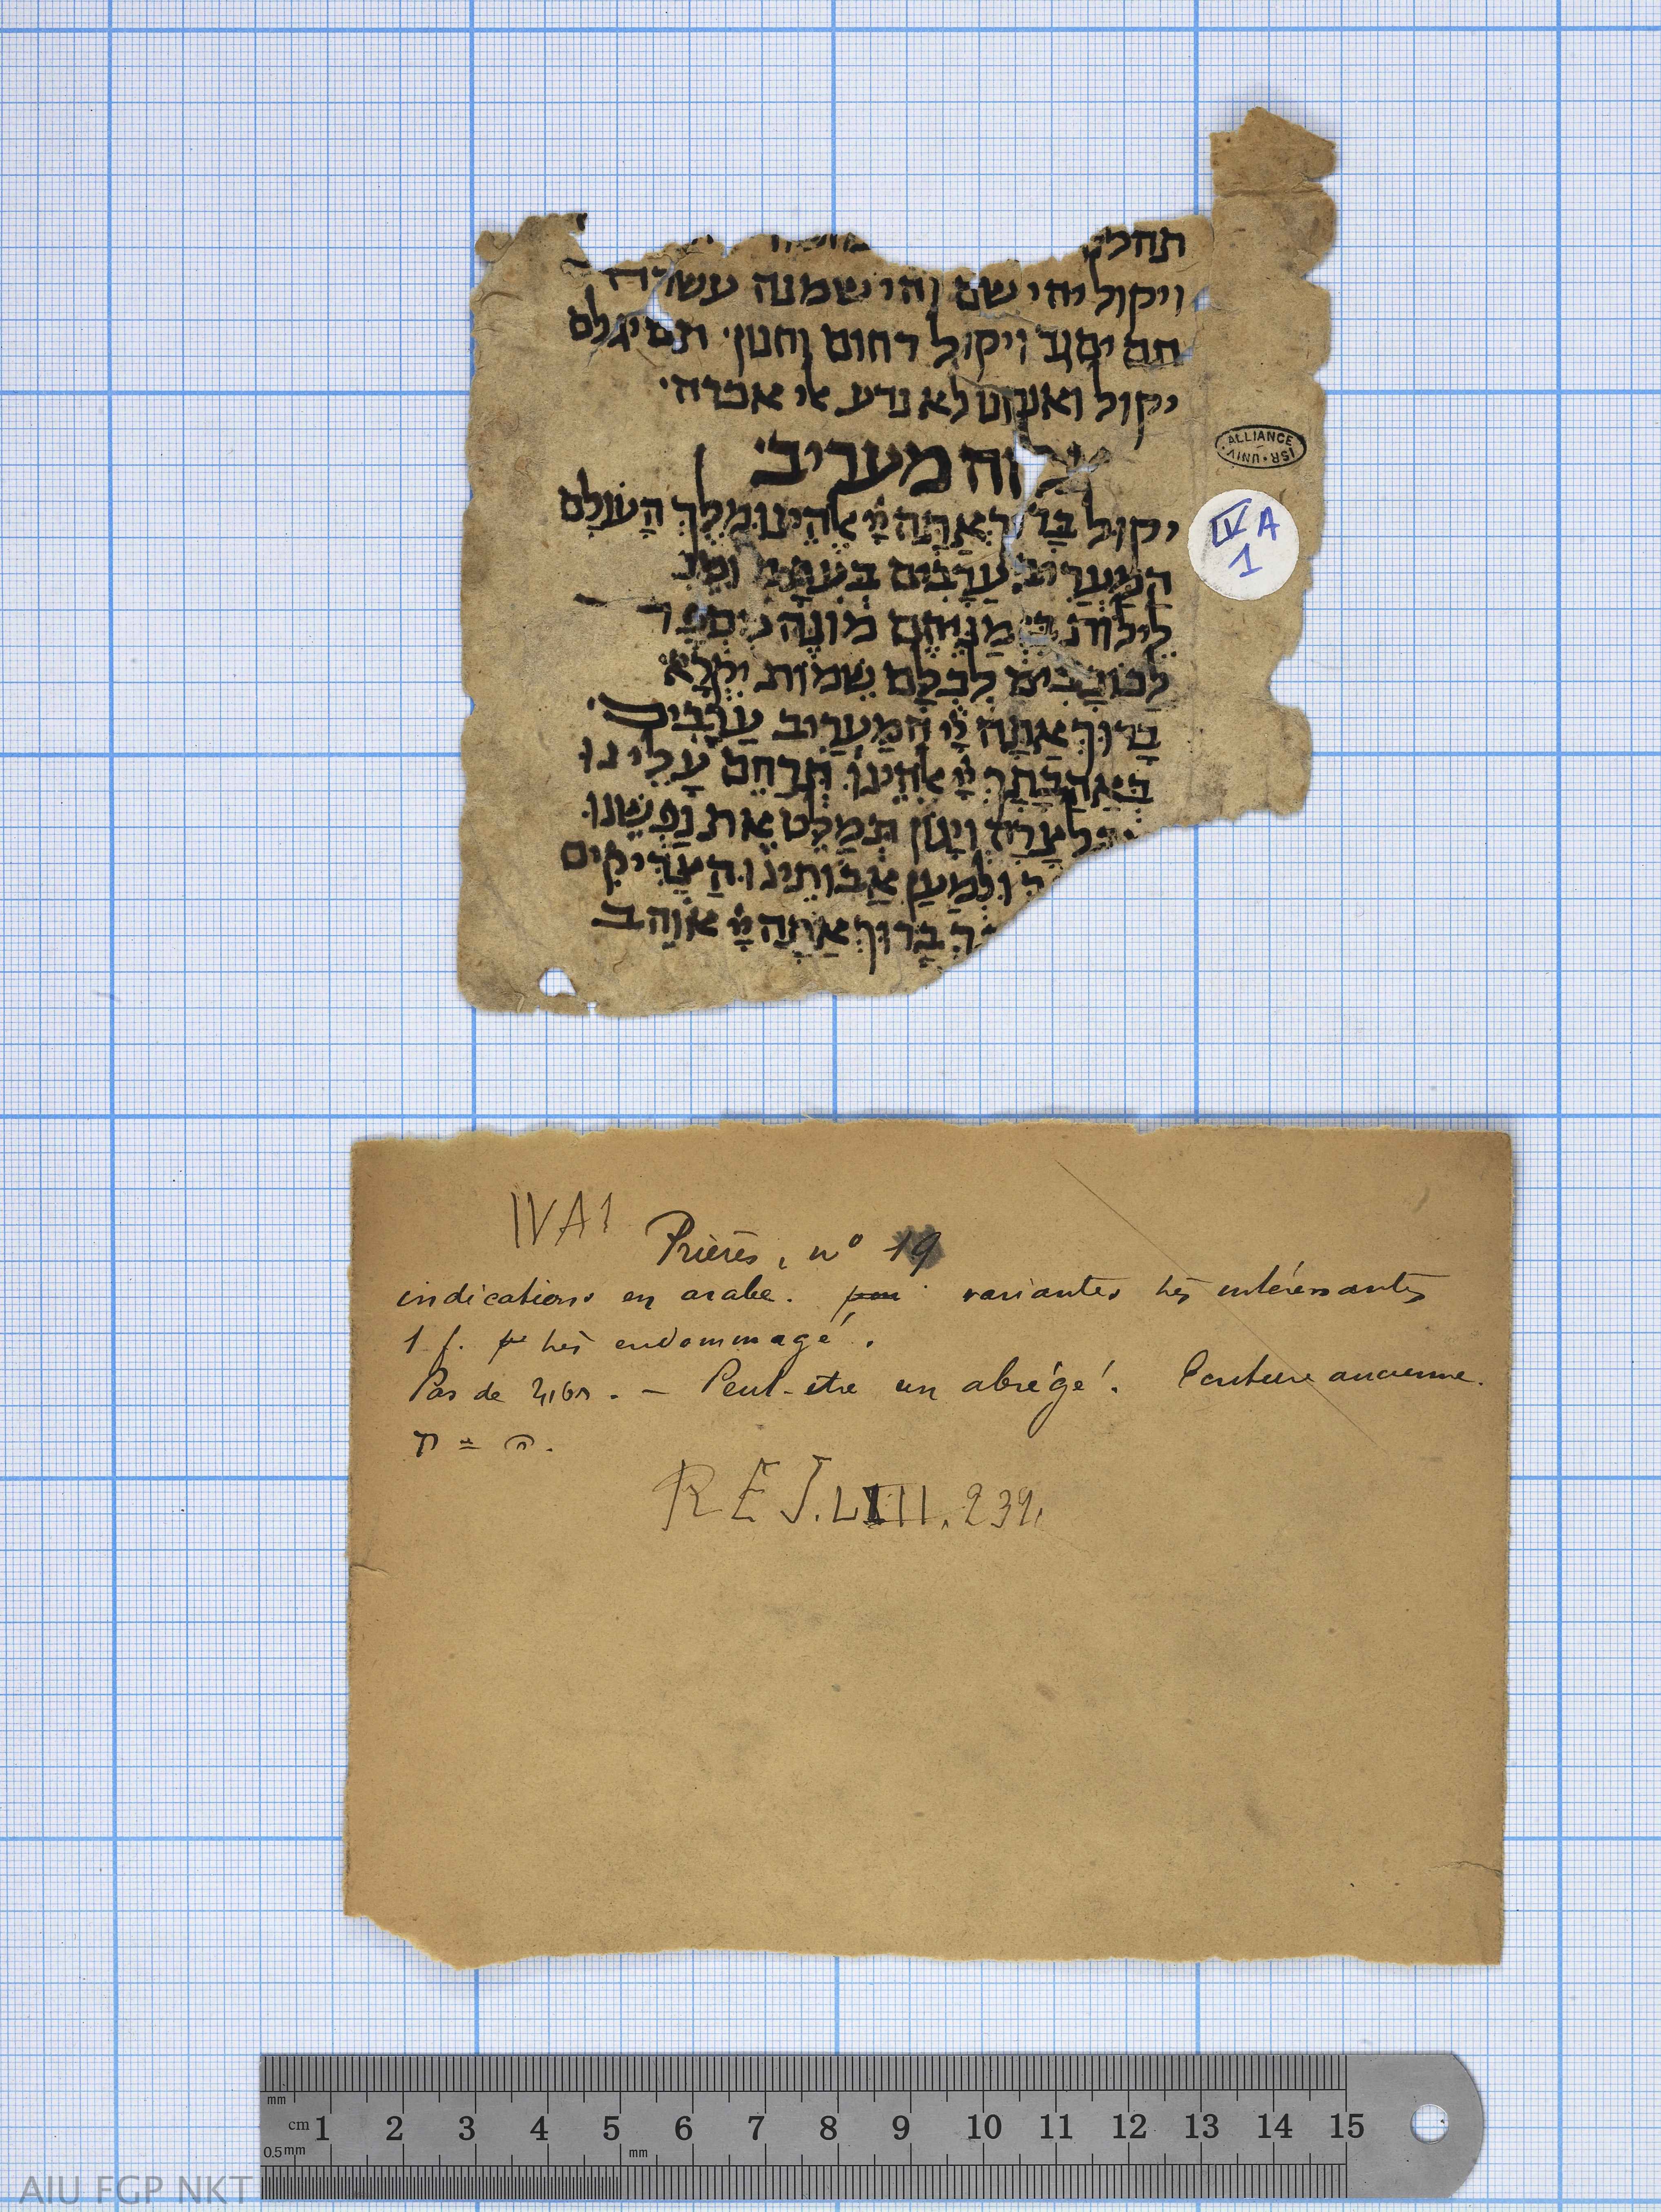 תחלק
ויקול יהי שם והי שמנה עשרה
תם יסגד ויקול רחום וחנון תם יגלס
יקול ואנחנו לא נדע אלי אכרה
צלוה מעריב
יקול בָּרוּךְ אַתָּה יְיָ אֱלֹהֵינוּ מֶלֶךְ הָעוֹלָם
הַמַּעֲרִיב עֲרָבִים
לֵילוֹת מוֹנֶה מִסְפָּר
לַכּוֹכָבִים לְכֻלָּם שֵׁמוֹת יִקְרָא
בָּרוּךְ אַתָּה יְיָ הַמַּעֲרִיב עֲרָבִים
בְּאַהֲבָתָךְ יְיָ אֱלֹהֵינוּ תְּרַחֵם עָלֵינוּ
צָרָה וְיָגוֹן תְּמַלֵּט אֶת נַפְשֵׁנוּ
וּלְמַעַן אֲבוֹתֵינוּ הַצַּדִּיקִים
בָּרוּךְ אַתָּה יְיָ אוֹהֵב
ALLIANCE ISR. UNIV.
IV A
1
IVA1
Prières, n° 19
indications en arabe. variantes très intéressantes
1 f. très endommagé.
Pas de - Peut-être un abrégé. Ecriture ancienne.
ח = ה.
REJ. LIII. 239.
mm
cm 1 2 3 4 5 6 7 8 9 10 11 12 13 14 15
0.5mm mm
AIU FGP NKT